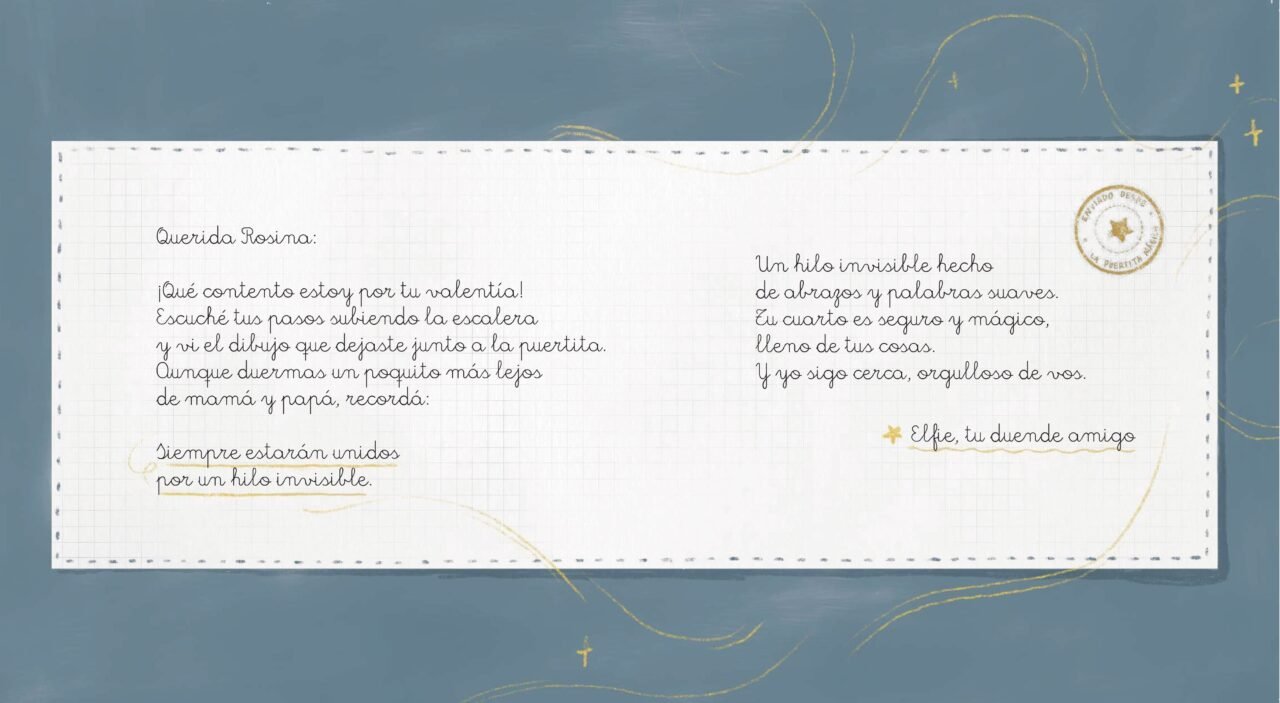 Querida Rosina:
¡Qué contento estoy por tu valentía!
Escuché tus pasos subiendo la escalera
y vi el dibujo que dejaste junto a la puertita.
Aunque duermas un poquito más lejos
de mamá y papá, recordá:
Siempre estarán unidos
por un hilo invisible.
ENVIADO DESDE
LA PUERTITA MÁGICA
Un hilo invisible hecho
de abrazos y palabras suaves.
Tu cuarto es seguro y mágico,
lleno de tus cosas.
Y yo sigo cerca, orgulloso de vos.
Elfie, tu duende amigo